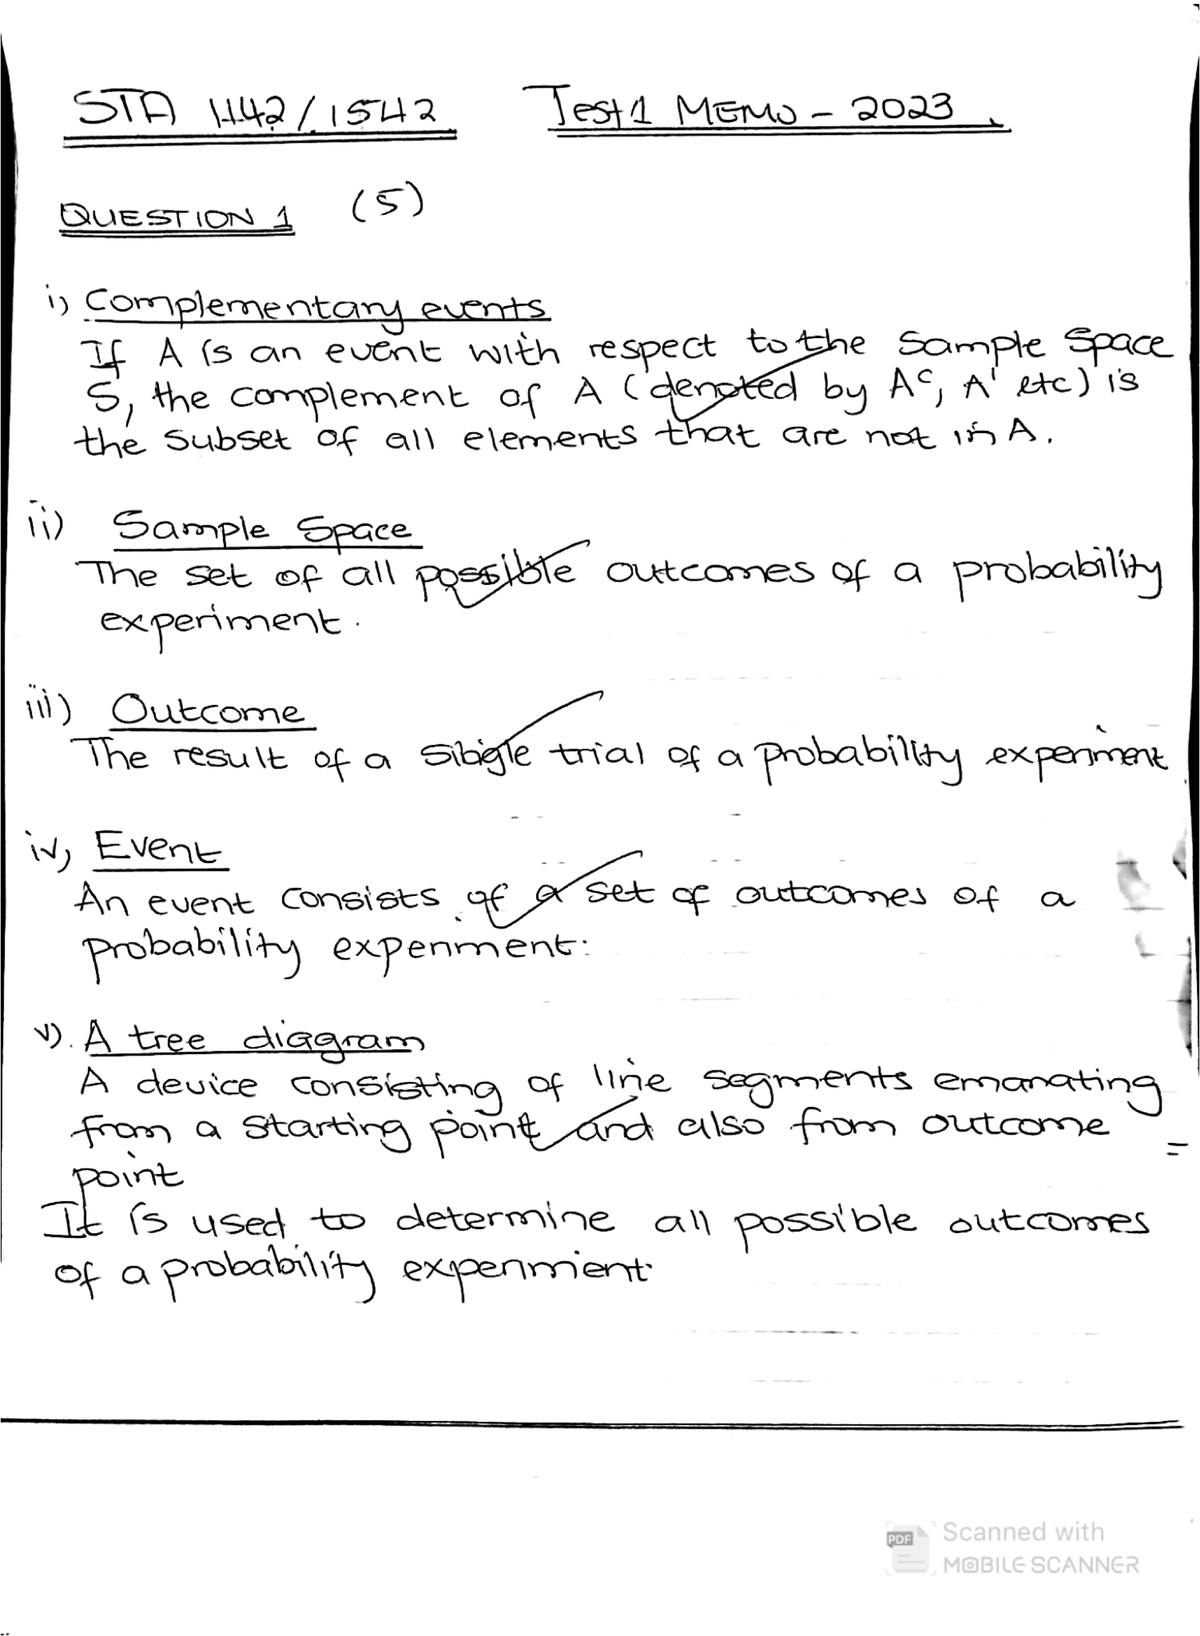 STA 1142/1542 Test 1 MEMO - 2023
QUESTION 1 (5)
i) Complementary events
If A is an event with respect to the Sample Space
S, the complement of A (denoted by Aᶜ, A' etc) is
the subset of all elements that are not in A.
ii) Sample Space
The set of all possible outcomes of a probability
experiment.
iii) Outcome
The result of a single trial of a probability experiment
iv) Event
An event consists of a set of outcomes of a
probability experiment.
v). A tree diagram
A device consisting of line segments emanating
from a starting point and also from outcome
point
It is used to determine all possible outcomes
of a probability experiment.
PDF Scanned with
MOBILE SCANNER